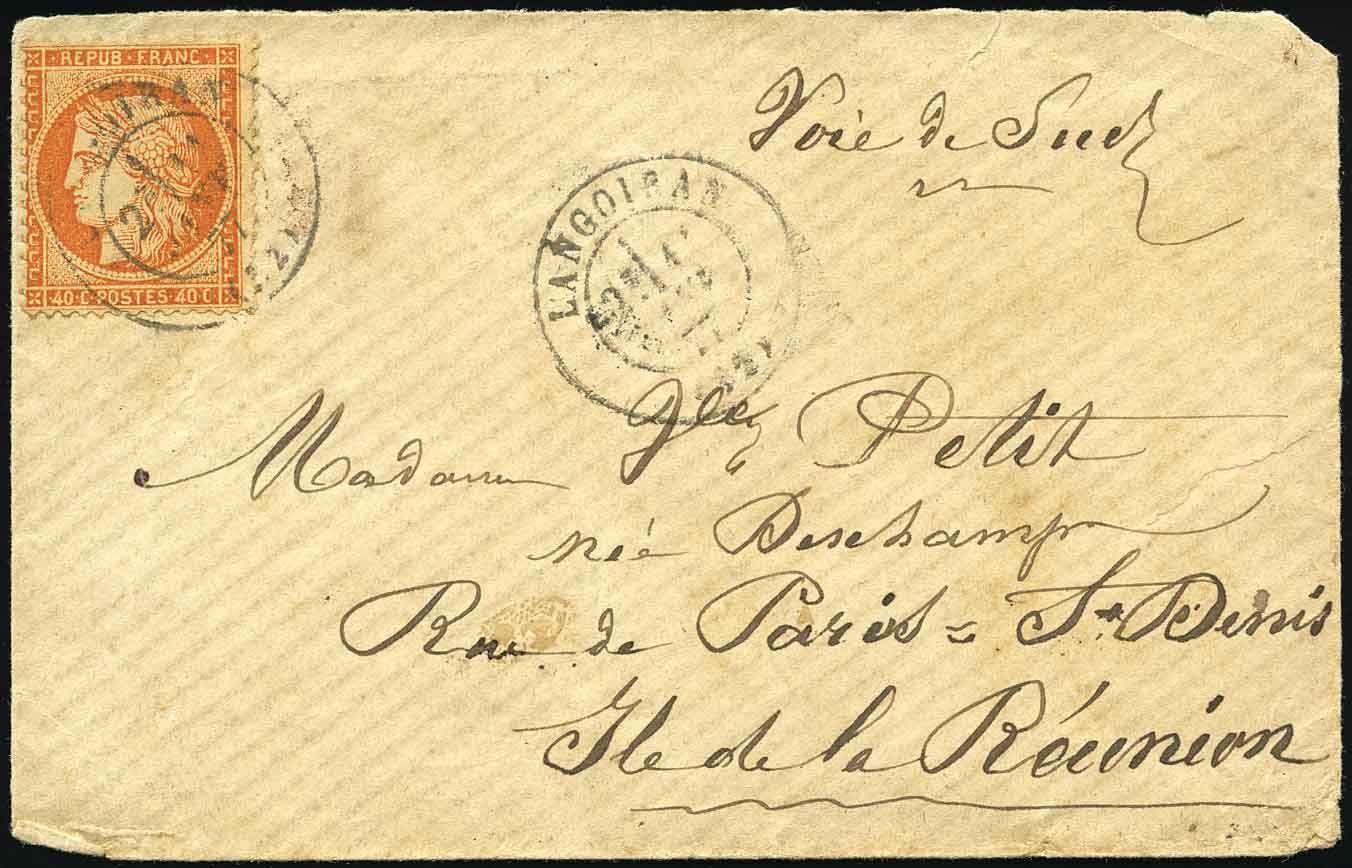 REPUB · FRANC
40 C · POSTES · 40 C
Voie de Suez
LANGOIRAN
Madame Petit
née Deschamps
Rue de Paris = St Denis
Ile de la Réunion